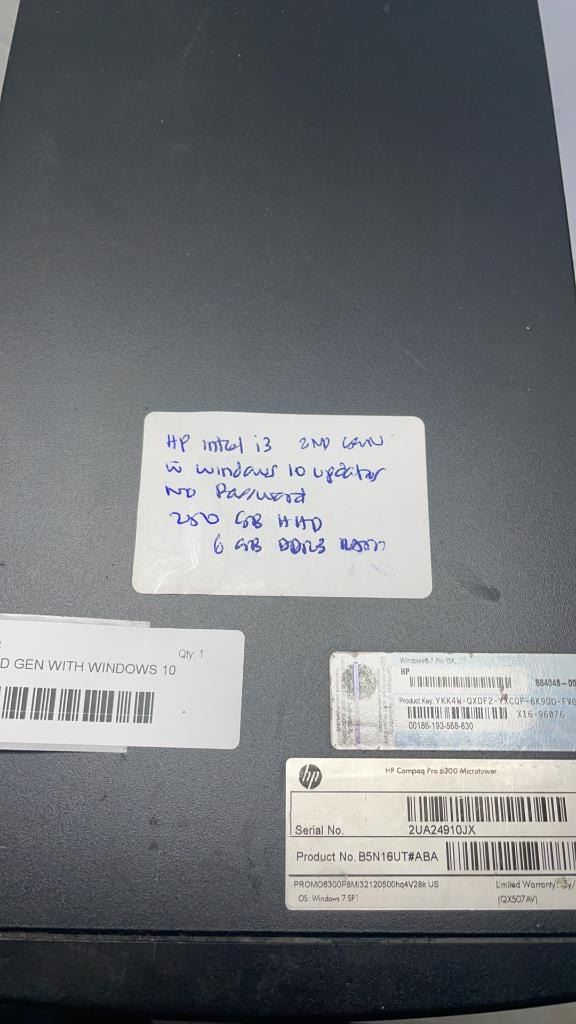 HP intel i3 2ND GEN
w̄ windows 10 updates
NO Password
250 GB HHD
6 GB DDR3 RAM
Qty: 1
D GEN WITH WINDOWS 10
Windows® 7 Pro OA
HP
684048-00
Product Key: YKK4W-QXDF2-YXCQF-6K9DD-FV
X16-96076
00186-193-568-830
hp
HP Compaq Pro 6300 Microtower
Serial No.
2UA24910JX
Product No. B5N16UT#ABA
PROMO6300P8Mi32120500hq4V28k US
Limited Warranty:
OS: Windows 7 SP1
(QX507AV)